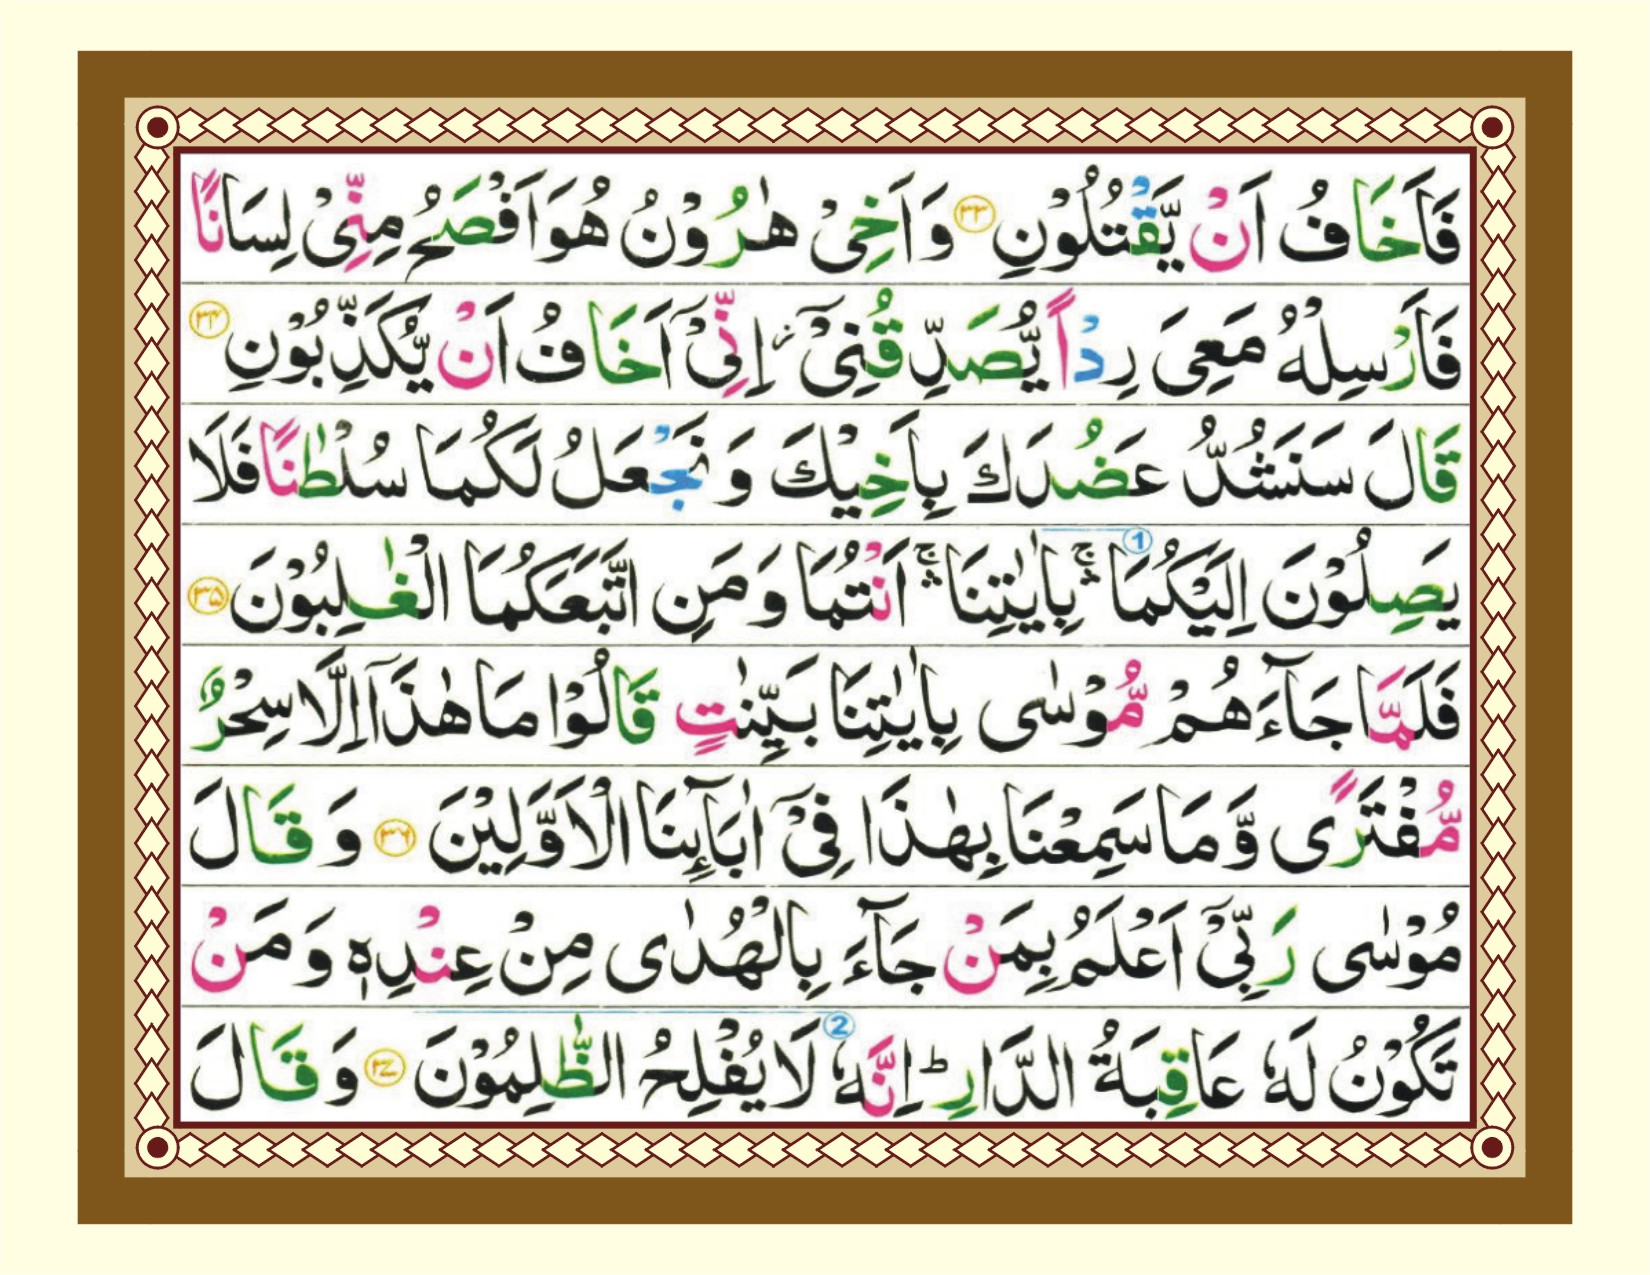 فَاَخَافُ اَنْ يَّقْتُلُوْنِ ۳۳ وَاَخِىْ هٰرُوْنُ هُوَاَفْصَحُ مِنِّىْ لِسَانًا
فَاَرْسِلْهُ مَعِىَ رِدْاً يُّصَدِّقُنِىْٓ ز اِنِّىْٓ اَخَافُ اَنْ يُّكَذِّبُوْنِ ۳۴
قَالَ سَنَشُدُّ عَضُدَكَ بِاَخِيْكَ وَنَجْعَلُ لَكُمَا سُلْطٰنًا فَلَا
يَصِلُوْنَ اِلَيْكُمَا ۛۚ 1 بِاٰيٰتِنَا ۛۚ اَنْتُمَا وَمَنِ اتَّبَعَكُمَا الْغٰلِبُوْنَ ۳۵
فَلَمَّا جَآءَهُمْ مُّوْسٰى بِاٰيٰتِنَا بَيِّنٰتٍ قَالُوْا مَا هٰذَآ اِلَّا سِحْرٌ
مُّفْتَرًى وَّمَا سَمِعْنَا بِهٰذَا فِىْٓ اٰبَآئِنَا الْاَوَّلِيْنَ ۳۶ وَقَالَ
مُوْسٰى رَبِّىْٓ اَعْلَمُ بِمَنْ جَآءَ بِالْهُدٰى مِنْ عِنْدِهٖ وَمَنْ
تَكُوْنُ لَهٗ عَاقِبَةُ الدَّارِ ؕ اِنَّهٗ 2 لَا يُفْلِحُ الظّٰلِمُوْنَ ۳۷ وَقَالَ